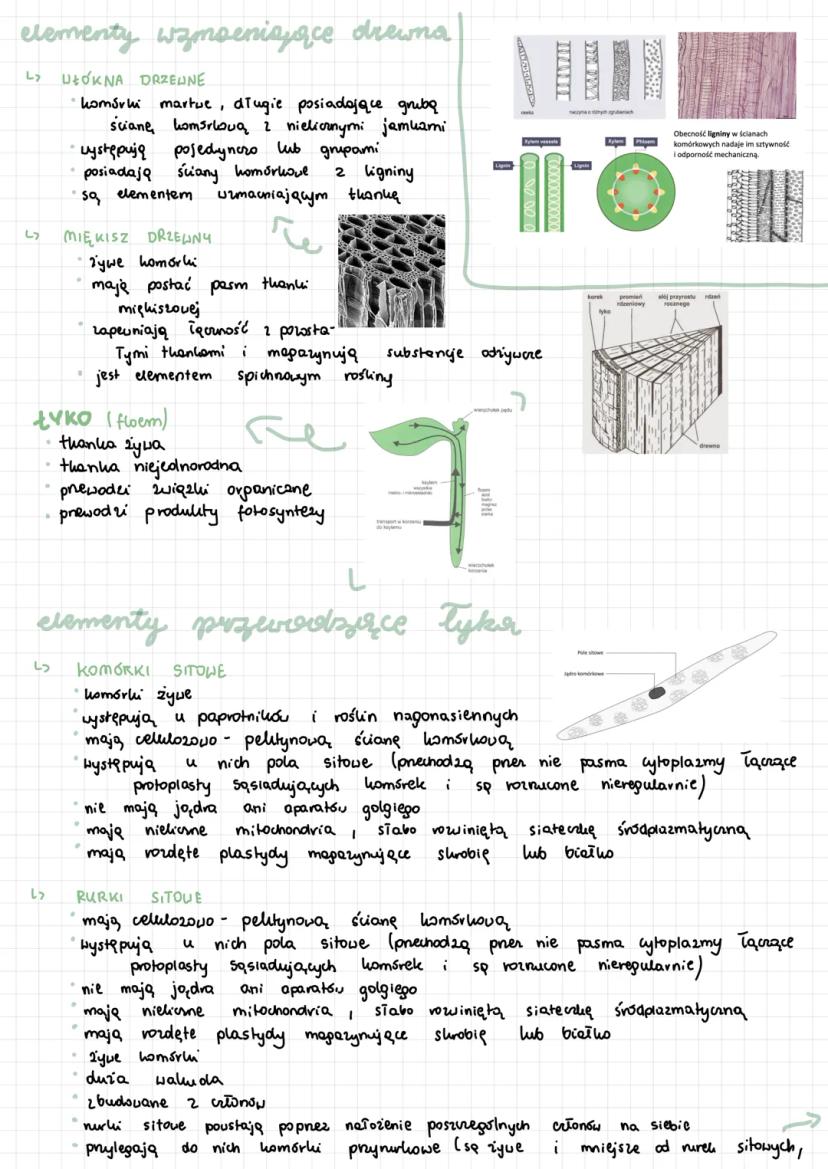 elementy wzmacniające drewna
↳ WŁÓKNA DRZEWNE
• komórki martwe, długie posiadające grubą
ścianę komórkową z nielicznymi jamkami
• występują pojedynczo lub grupami
• posiadają ściany komórkowe z ligniny
• są elementem wzmacniającym tkankę
↳ MIĘKISZ DRZEWNY
• żywe komórki
• mają postać pasm tkanki
miękiszowej
• zapewniają łączność z pozosta-
łymi tkankami i magazynują substancje odżywcze
• jest elementem spichrzowym rośliny
cewka
naczynia o różnych zgrubieniach
Xylem vessels
Lignin
Lignin
Xylem
Phloem
Obecność ligniny w ścianach
komórkowych nadaje im sztywność
i odporność mechaniczną.
korek
promień rdzeniowy
słój przyrostu rocznego
rdzeń
łyko
drewno
ŁYKO (floem)
• tkanka żywa
• tkanka niejednorodna
• przewodzi związki organiczne
• przewodzi produkty fotosyntezy
wierzchołek pędu
ksylem
wszystkie
transport w korzeniu
do ksylemu
floem
wierzchołek
korzenia
elementy przewodzące łyka
↳ KOMÓRKI SITOWE
• komórki żywe
• występują u paprotników i roślin nagonasiennych
• mają celulozowo - pektynową ścianę komórkową
• występują u nich pola sitowe (przechodzą przez nie pasma cytoplazmy łączące
protoplasty sąsiadujących komórek i są rozrzucone nieregularnie)
• nie mają jądra ani aparatów golgiego
• mają nieliczne mitochondria, słabo rozwiniętą siateczkę śródplazmatyczną
• mają rozdęte plastydy magazynujące skrobię lub białko
Pole sitowe
Jądro komórkowe
↳ RURKI SITOWE
• mają celulozowo - pektynową ścianę komórkową
• występują u nich pola sitowe (przechodzą przez nie pasma cytoplazmy łączące
protoplasty sąsiadujących komórek i są rozrzucone nieregularnie)
• nie mają jądra ani aparatów golgiego
• mają nieliczne mitochondria, słabo rozwiniętą siateczkę śródplazmatyczną
• mają rozdęte plastydy magazynujące skrobię lub białko
• żywe komórki
• duża wakuola
• zbudowane z członów
• rurki sitowe powstają poprzez nałożenie poszczególnych członów na siebie
• przylegają do nich komórki przyrurkowe (są żywe i mniejsze od rurek sitowych,